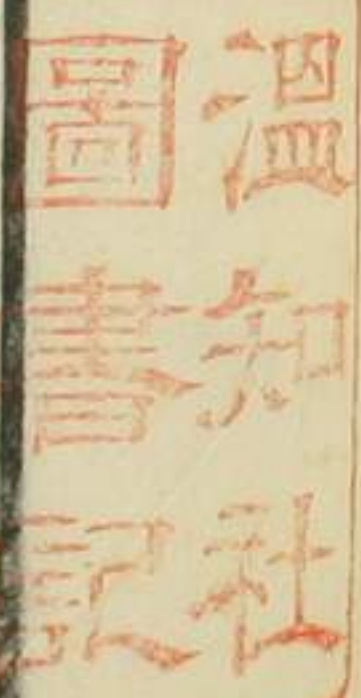 溫知社
圖書記